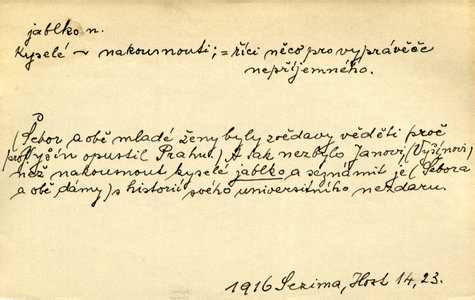 jablko n.
Kyselé ~ nakousnouti; = říci něco pro vyprávěče
nepříjemného.
(Šebor a obě mladé ženy byly zvědavy věděti proč
Vyšín opustil Prahu.) A tak nezbylo Janovi (Vyšínovi)
než nakousnout kyselé jablko a seznámit je (Šebora
a obě dámy) s historií svého universitního nezdaru.
1916 Sezima, Host 14, 23.